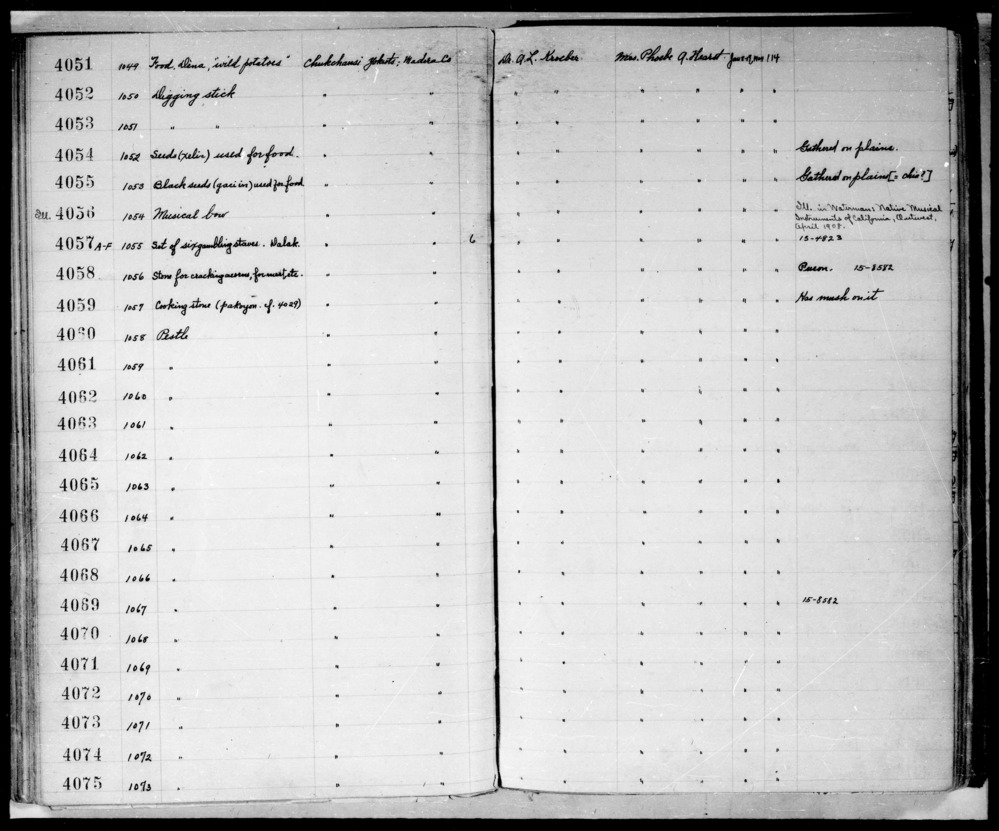 4051 1049 Food, Dena, "wild potatoes" Chukchansi Yokuts; Madera Co Dr. A.L. Kroeber Mrs. Phoebe A. Hearst 114
4052 1050 Digging stick " " " " " " " "
4053 1051 " " " " " " " " " "
4054 1052 Seeds (xelin) used for food. " " " " " " " " Gathered on plains.
4055 1053 Black seeds (gaciin) used for food " " " " " " " " Gathered on plains [= chia?]
Ill. 4056 1054 Musical bow " " " " " " " " Ill. in Waterman: Native Musical
Instruments of California, Outwest,
April 1908.
4057 A-F 1055 Set of six gambling staves. Dalak. " " 6 " " " " " " 15-4823
4058 1056 Stone for cracking acorns, for meat, etc. " " " " " " " " 15-8582
4059 1057 Cooking stone (cf. 4029) " " " " " " " " Has mush on it
4060 1058 Pestle " " " " " " " "
4061 1059 " " " " " " " " "
4062 1060 " " " " " " " " "
4063 1061 " " " " " " " " "
4064 1062 " " " " " " " " "
4065 1063 " " " " " " " " "
4066 1064 " " " " " " " " "
4067 1065 " " " " " " " " "
4068 1066 " " " " " " " " "
4069 1067 " " " " " " " " " 15-8582
4070 1068 " " " " " " " " "
4071 1069 " " " " " " " " "
4072 1070 " " " " " " " " "
4073 1071 " " " " " " " " "
4074 1072 " " " " " " " " "
4075 1073 " " " " " " " " "